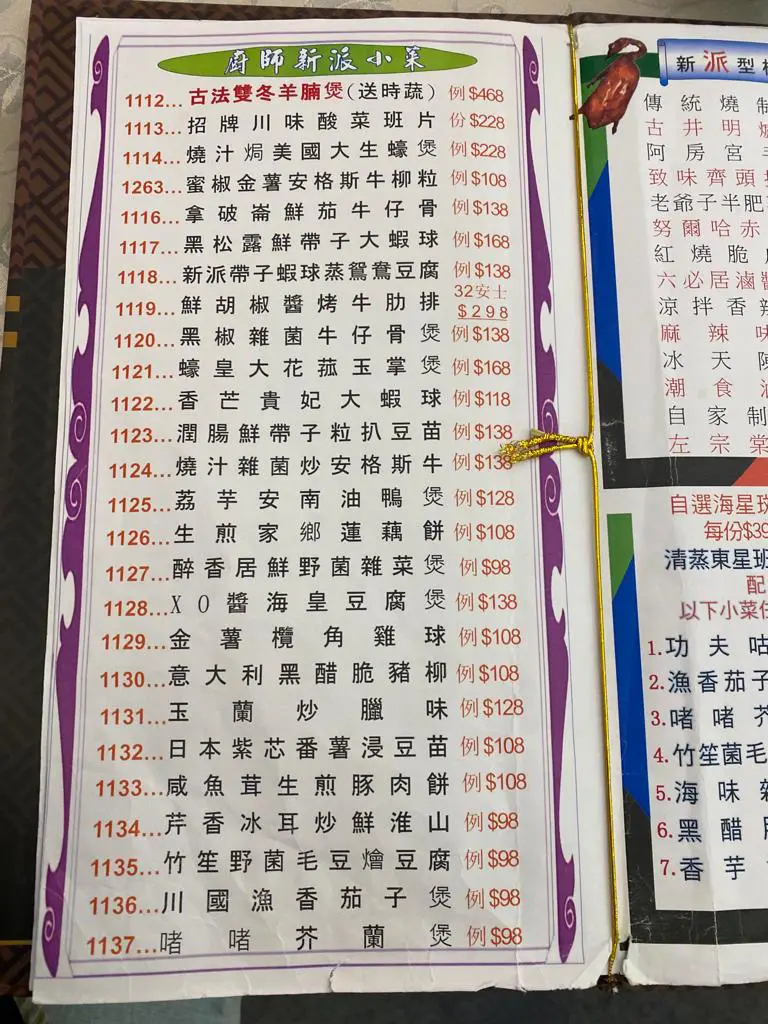 廚師新派小菜
1112...古法雙冬羊腩煲(送時蔬) 例$468
1113...招牌川味酸菜班片 份$228
1114...燒汁焗美國大生蠔煲 例$228
1263...蜜椒金薯安格斯牛柳粒 例$108
1116...拿破崙鮮茄牛仔骨 例$138
1117...黑松露鮮帶子大蝦球 例$168
1118...新派帶子蝦球蒸鴛鴦豆腐 例$138
1119...鮮胡椒醬烤牛肋排 32安士 $298
1120...黑椒雜菌牛仔骨煲 例$138
1121...蠔皇大花菰玉掌煲 例$168
1122...香芒貴妃大蝦球 例$118
1123...潤腸鮮帶子粒扒豆苗 例$138
1124...燒汁雜菌炒安格斯牛 例$138
1125...荔芋安南油鴨煲 例$128
1126...生煎家鄉蓮藕餅 例$108
1127...醉香居鮮野菌雜菜煲 例$98
1128...XO醬海皇豆腐煲 例$138
1129...金薯欖角雞球 例$108
1130...意大利黑醋脆豬柳 例$108
1131...玉蘭炒臘味 例$128
1132...日本紫芯番薯浸豆苗 例$108
1133...咸魚茸生煎豚肉餅 例$108
1134...芹香冰耳炒鮮淮山 例$98
1135...竹笙野菌毛豆燴豆腐 例$98
1136...川國漁香茄子煲 例$98
1137...啫啫芥蘭煲 例$98
新派型
傳統燒
古井明
阿房宮
致味齊頭
老爺子半肥
努爾哈赤
紅燒脆
六必居滷
涼拌香
麻辣
冰天
潮食
自家制
左宗棠
自選海星斑
每份$39
清蒸東星班
配
以下小菜任
1.功夫咕
2.漁香茄子
3.啫啫芥
4.竹笙菌毛
5.海味
6.黑醋
7.香芋